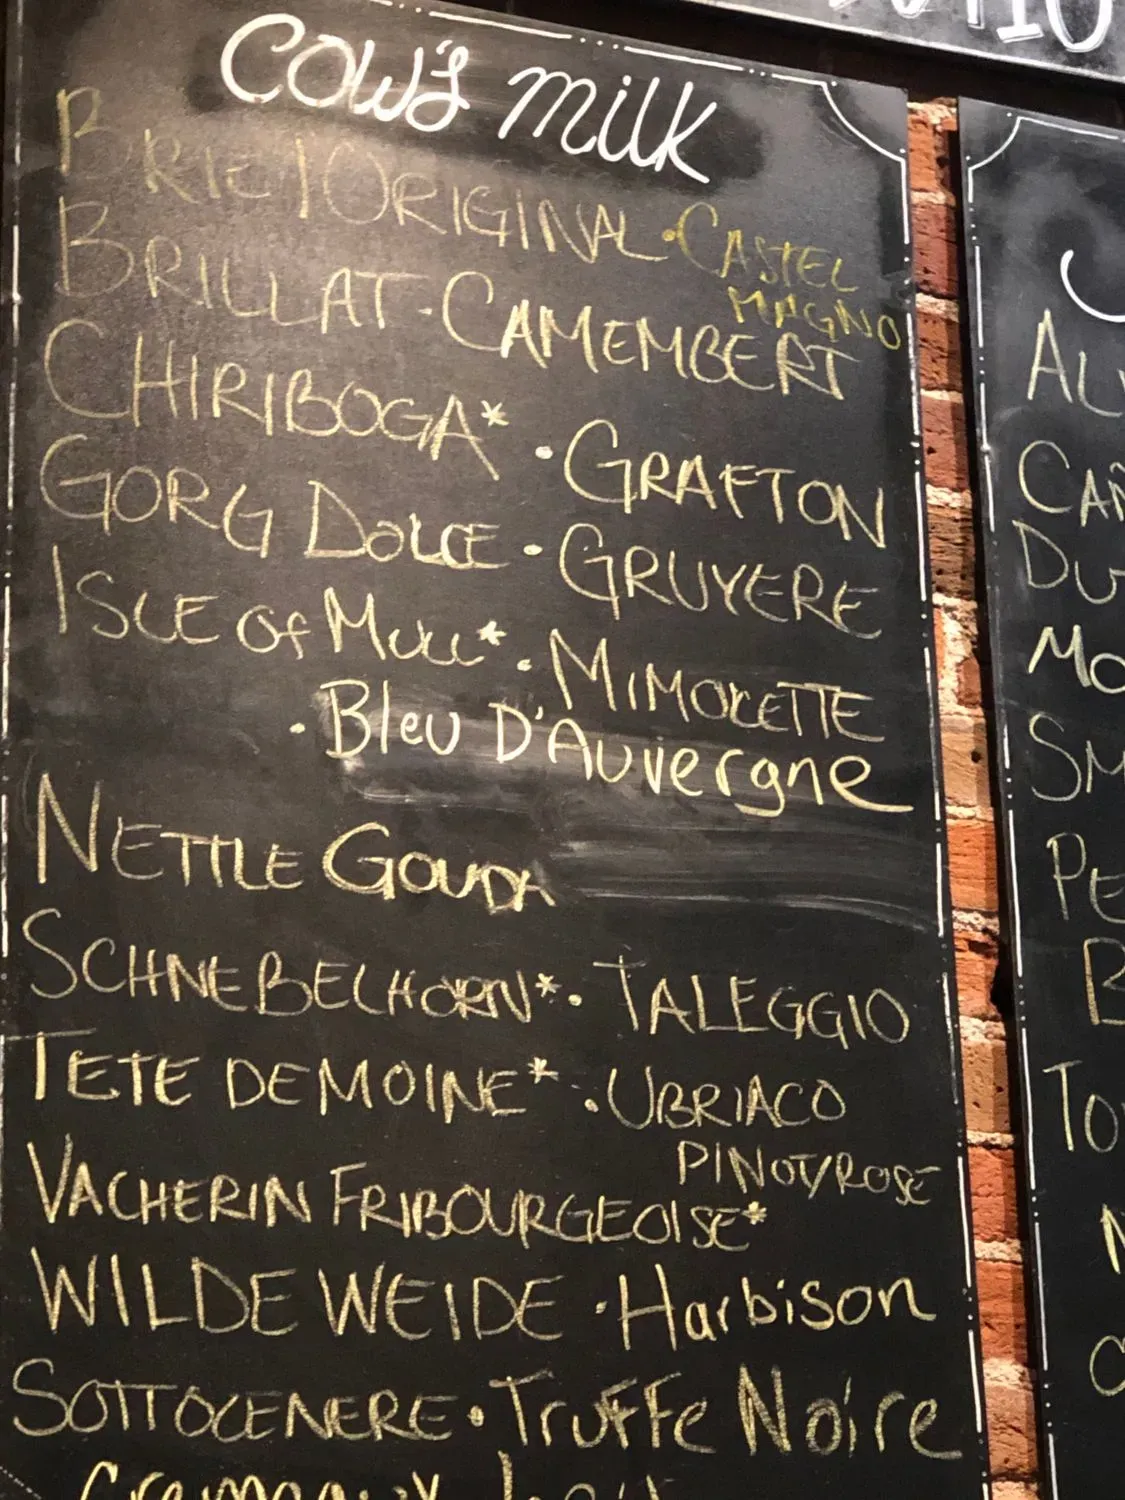 Cow's milk
BRIE/ORIGINAL · CASTEL
MAGNO
BRILLAT · CAMEMBERT
CHIRIBOGA* · GRAFTON
GORG DOLCE · GRUYERE
ISLE OF MULL* · MIMOLETTE
· Bleu D'Auvergne
NETTLE GOUDA
SCHNEBELHORN* · TALEGGIO
TETE DE MOINE* · UBRIACO
PINOT/ROSE
VACHERIN FRIBOURGEOISE*
WILDE WEIDE · Harbison
SOTTOCENERE · Truffe Noire
AL
CAÑ
DU
MO
SM
PE
B
TO